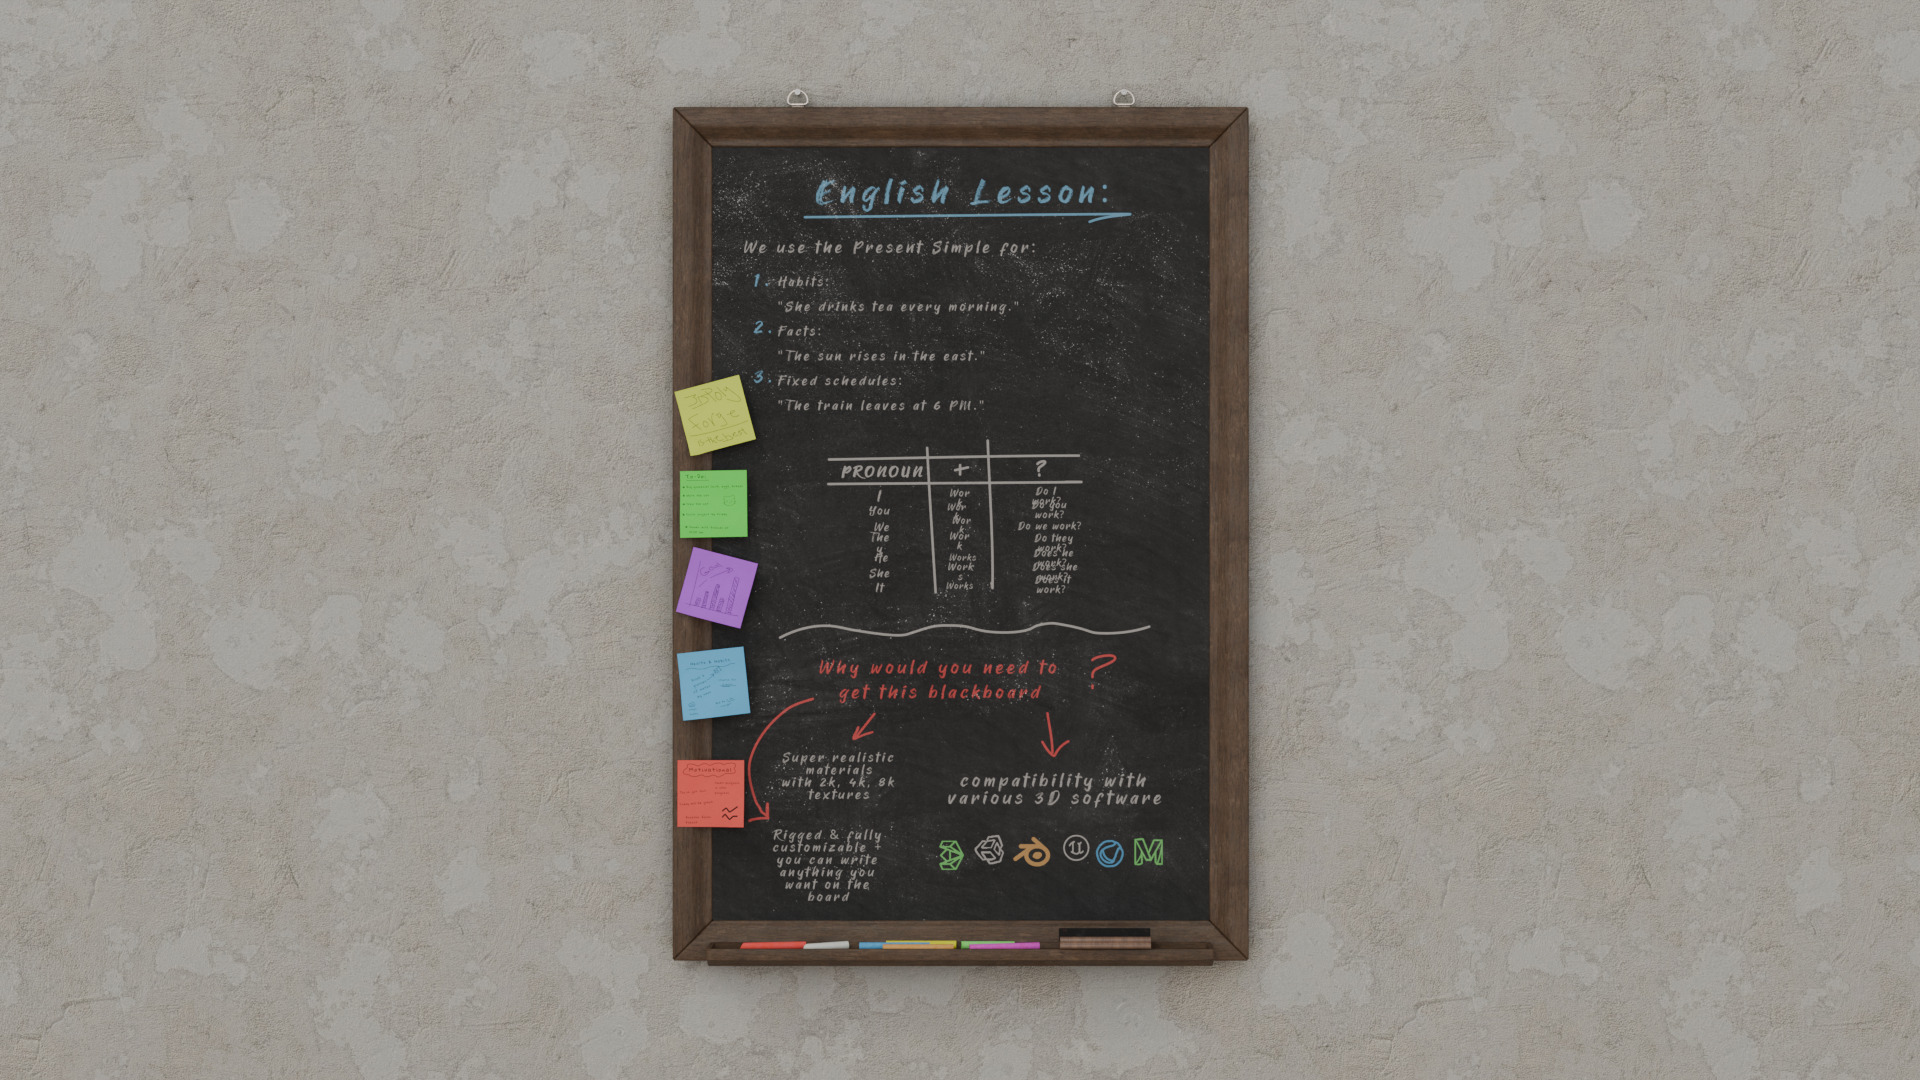 English Lesson:
We use the Present Simple for:
1. Habits:
"She drinks tea every morning."
2. Facts:
"The sun rises in the east."
3. Fixed schedules:
"The train leaves at 6 PM."
PRONOUN + ?
I Wor k Do I work?
You Wor k Do you work?
We Wor k Do we work?
The y Wor k Do they work?
He Works Does he work?
She Work s Does she work?
It Works Does it work?
Why would you need to ?
get this blackboard
Super realistic
materials
with 2k, 4k, 8k
textures
compatibility with
various 3D software
Rigged & fully
customizable +
you can write
anything you
want on the
board
To-Do:
Motivational